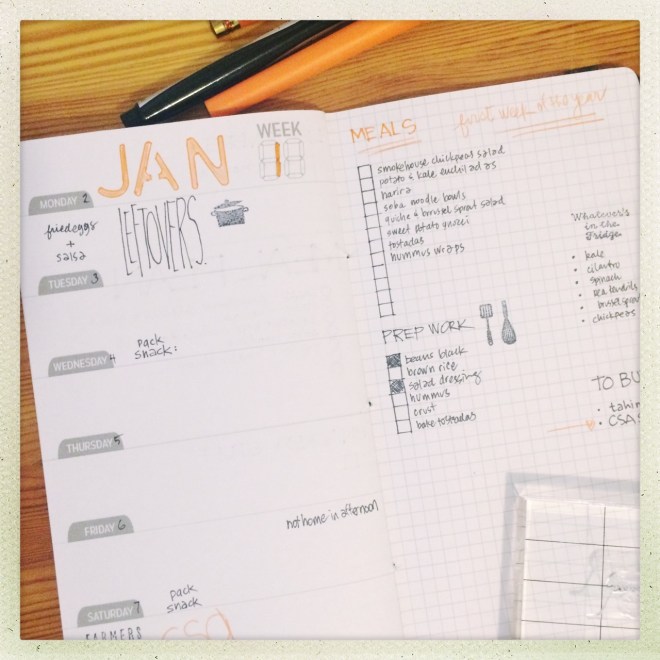 JAN
WEEK
1
MONDAY 2
fried eggs
+
salsa
LEFTOVERS.
TUESDAY 3
WEDNESDAY 4
pack
snack:
THURSDAY 5
FRIDAY 6
not home in afternoon
SATURDAY 7
pack
snack
FARMERS
CSA
MEALS
first week of the year
smokehouse chickpeas salad
potato & kale enchiladas
harira
soba noodle bowls
quiche & brussel sprout salad
sweet potato gnocci
tostadas
hummus wraps
Whatever's
in the
Fridge
• kale
• cilantro
• spinach
• pea tendrils
• brussel sprou
• chickpeas
PREP WORK
beans black
brown rice
salad dressing
hummus
crust
bake tostadas
TO BU
• tahin
• CSA